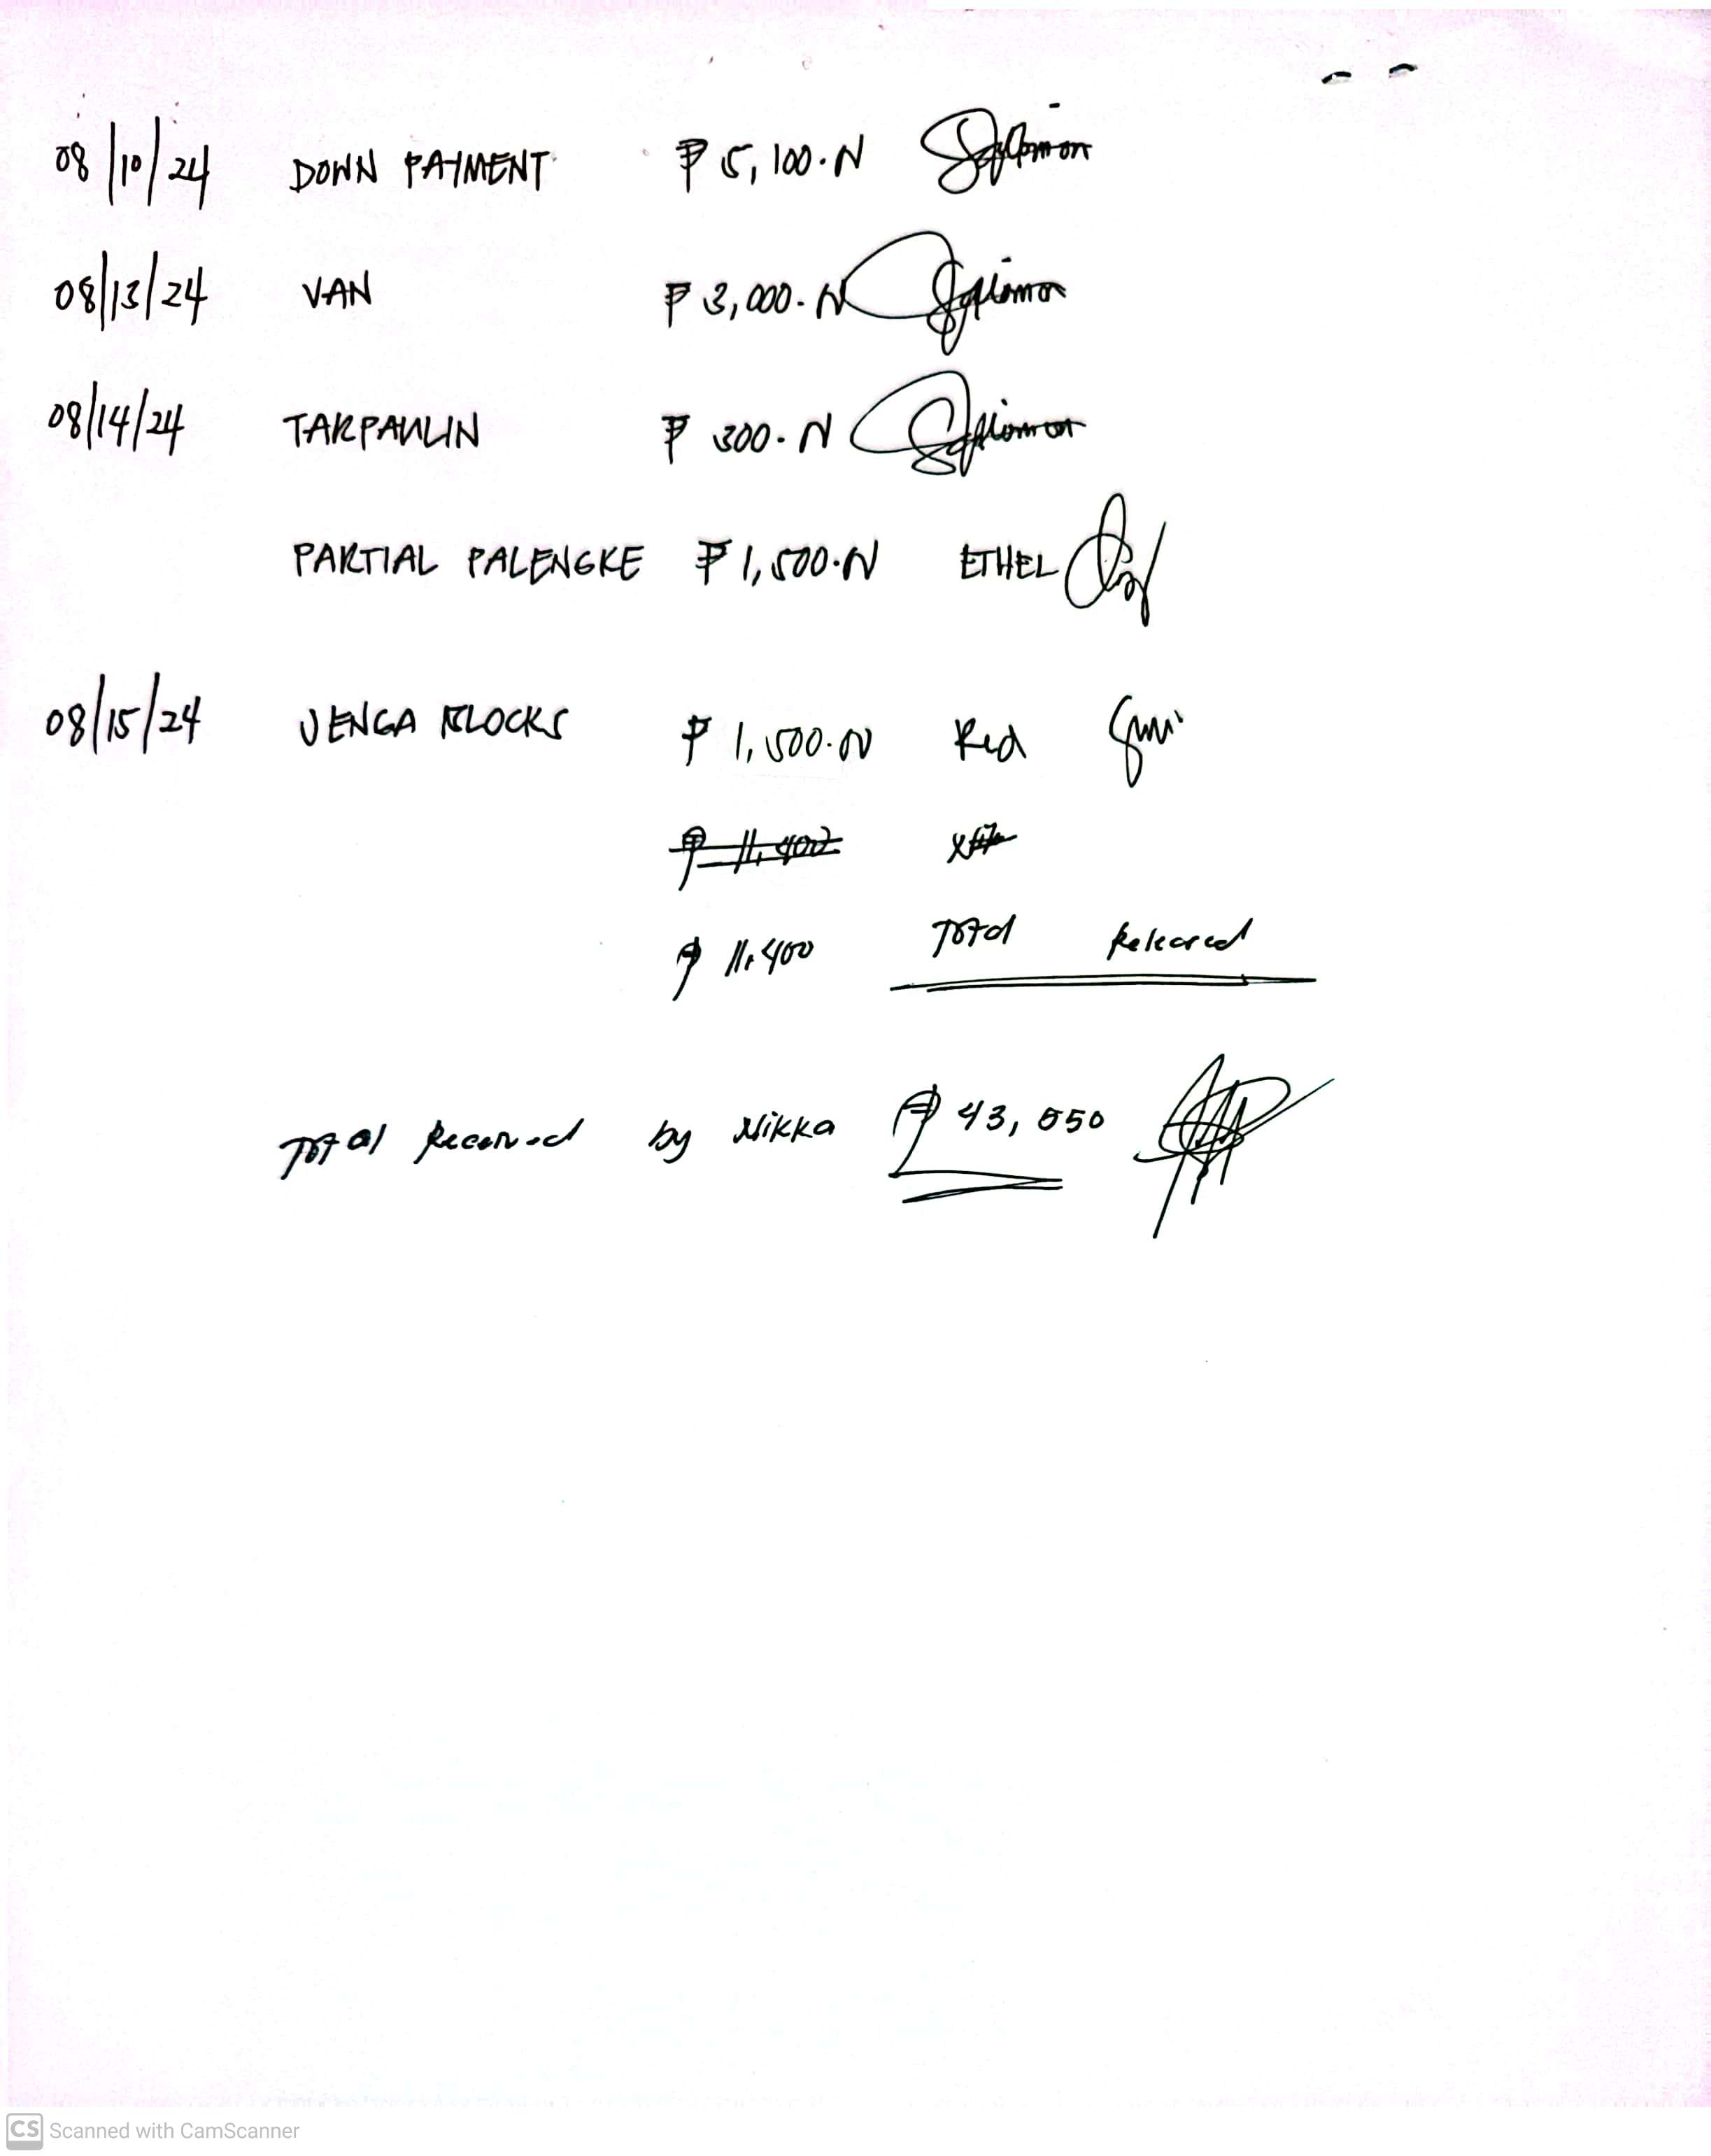 08/10/24 DOWN PAYMENT ₱ 5,100.00
08/13/24 VAN ₱ 3,000.00
08/14/24 TARPAULIN ₱ 300.00
PARTIAL PALENGKE ₱ 1,500.00 ETHEL
08/15/24 JENGA BLOCKS ₱ 1,500.00 Red
₱ 11,400
₱ 11,400 Total Released
Total Received by Nikka ₱ 43,550
CS Scanned with CamScanner